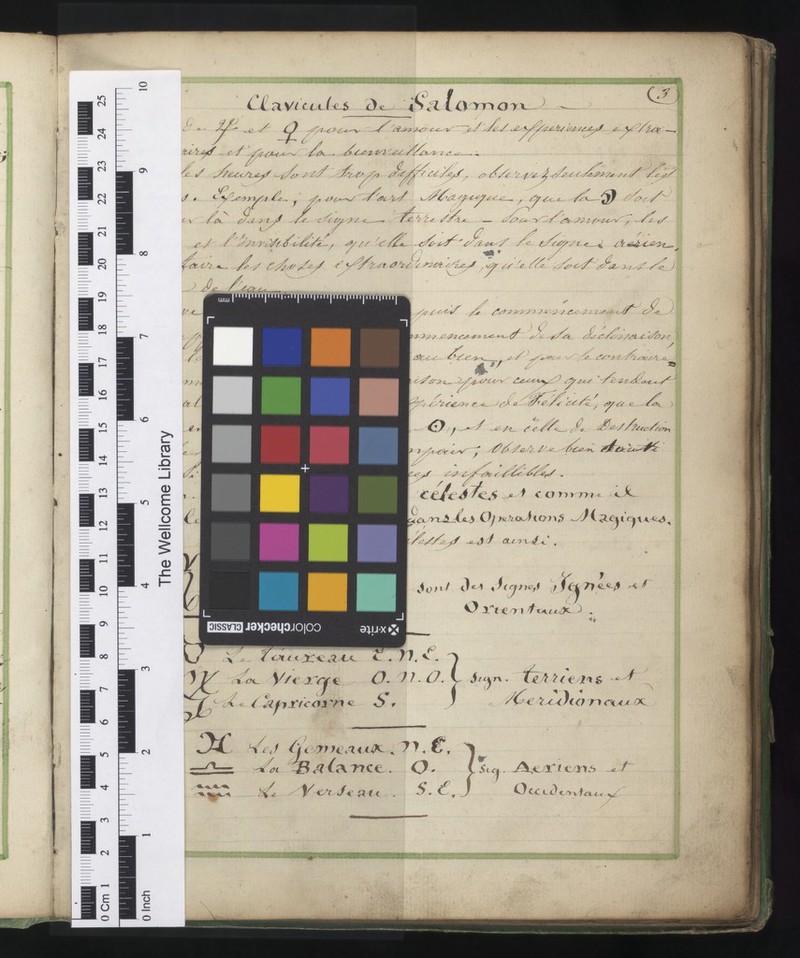 Clavicules de Salomon
(3
♃ et ♀ pour l'amour et les expériences extra-
et pour la bienveillance.
les heures sont trop difficiles, observez seulement
Exemple; pour l'art Magique, que la ☽ soit
là dans le signe terrestre - pour l'amour, les
et l'Invisibilité, qu'elle soit dans le Signe aérien,
faire les choses extraordinaires, qu'elle soit dans le
de l'eau
puis le commencement de
commencement de sa déclinaison,
au bien, et pour le contraire
pour ceux qui tendent
expérience de Félicité, que la
☉, et en celle de Destruction
impair; Observe bien
infaillibles.
célestes et comme il
dans les Operations Magiques.
célestes est ainsi.
sont des Signes Ignées et
Orientaux.
♉ Le Taureau E.N.E.
♍ La Vierge O.N.O. } Sign. terriens et
♑ Le Capricorne S. Meridionaux
♊ Les Gemeaux. N.E.
♎ La Balance. O. } Sig. Aeriens et
♒ Le Verseau. S.E. Occidentaux
The Wellcome Library
0 Cm 1 2 3 4 5 6 7 8 9 10 11 12 13 14 15 16 17 18 19 20 21 22 23 24 25
0 Inch 1 2 3 4 5 6 7 8 9 10
mm
x·rite colorchecker CLASSIC